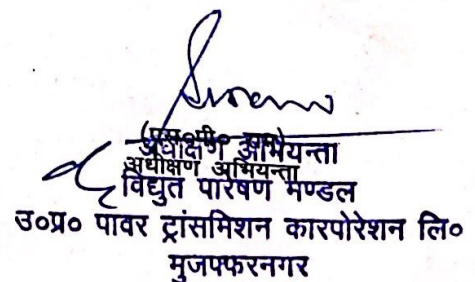 (एस०पी०
अधीक्षण अभियन्ता
अधीक्षण अभियन्ता
विद्युत पारेषण मण्डल
उ०प्र० पावर ट्रांसमिशन कारपोरेशन लि०
मुजफ्फरनगर